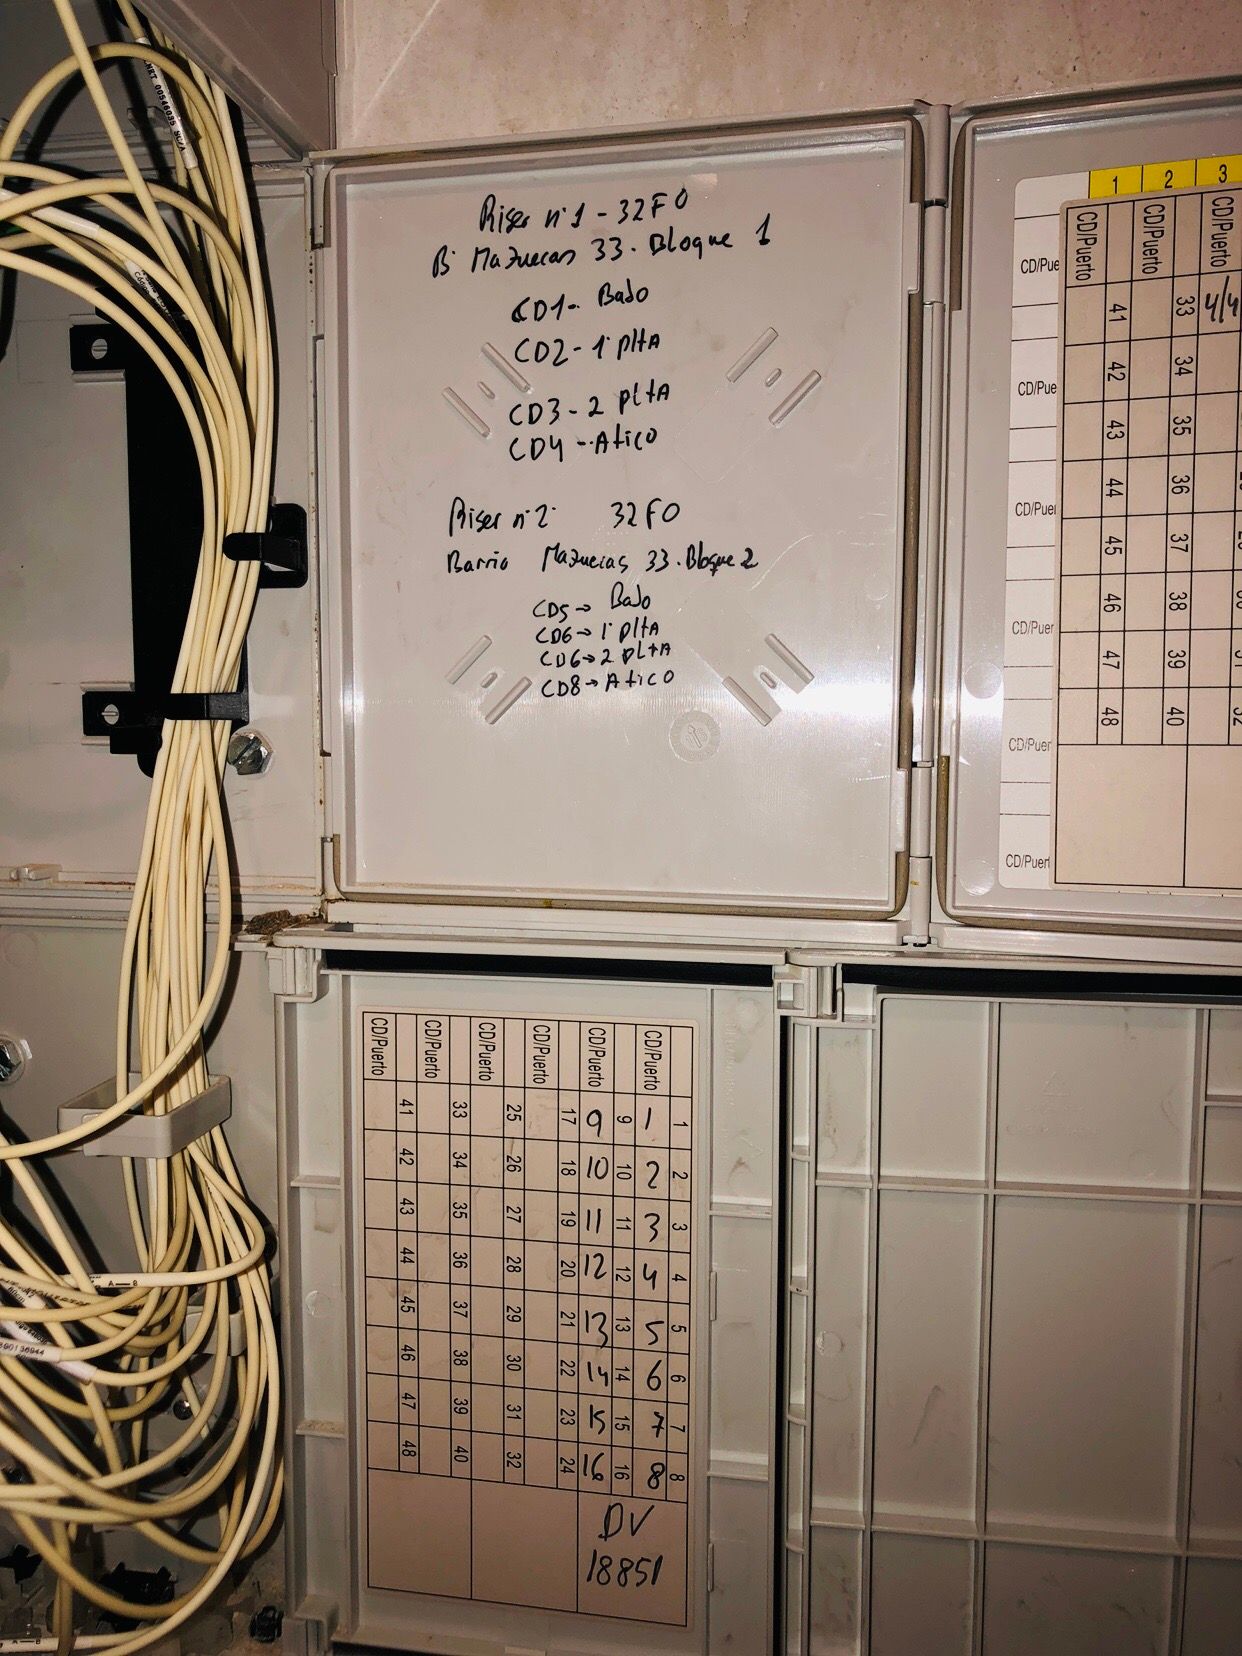 Riser nº1 - 32FO
Bº Mazuecas 33. Bloque 1
CD1 - Bajo
CD2 - 1ª pltA
CD3 - 2 pltA
CD4 - Atico
Riser nº2 32FO
Barrio Mazuecas 33. Bloque 2
CD5 → Bajo
CD6 → 1ª pltA
CD6 → 2 pltA
CD8 → Atico
1 2 3
CD/Puerto CD/Puerto CD/Puerto
4/4
33 34 35 36 37 38 39 40
41 42 43 44 45 46 47 48
32
CD/Pue
CD/Pue
CD/Puer
CD/Puer
CD/Puer
CD/Puert
1 2 3 4 5 6 7 8
CD/Puerto 1 2 3 4 5 6 7 8
9 10 11 12 13 14 15 16
CD/Puerto 9 10 11 12 13 14 15 16
DV
18851
17 18 19 20 21 22 23 24
CD/Puerto
25 26 27 28 29 30 31 32
CD/Puerto
33 34 35 36 37 38 39 40
CD/Puerto
41 42 43 44 45 46 47 48
CD/Puerto
00546035
A—B
A—B